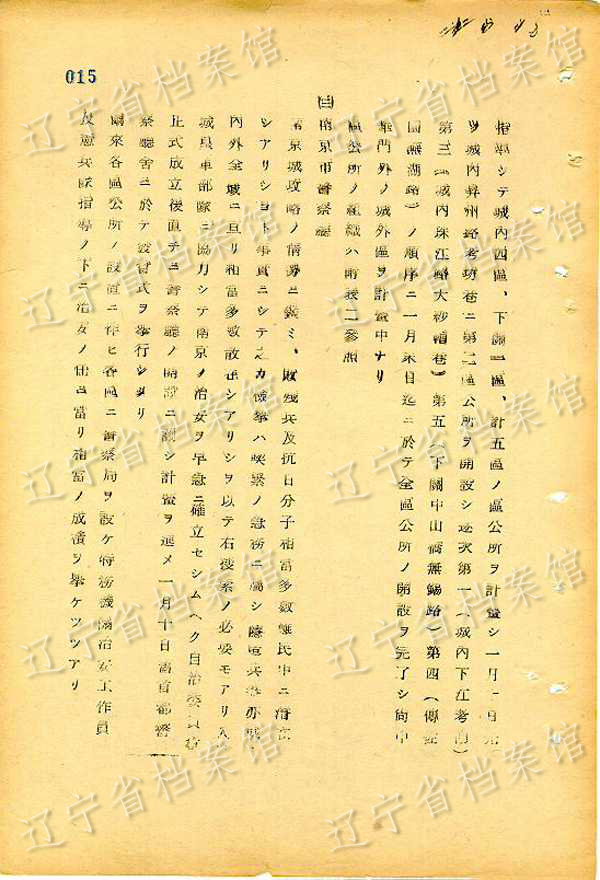 015
指導シテ城内四區、下關一區、計五區ノ區公所ヲ計畫シ一月
ヲ城內昇州路考坊巷ニ第二區公所ヲ開設シ逐次第一(城內下江考
第三(城內珠江路大紗帽巷)第五(下關中山橋無錫路)第四(
國蕪湖路)ノ順序ニ一月末日迄ニ於テ全區公所ノ開設ヲ完了シ尙中
華門外ノ城外區ヲ計畫中ナリ
區公所ノ組織ハ附表二參照
㈢南京市警察廳
南京城攻略ノ情勢ニ鑑ミ、敗殘兵及抗日分子相當多數難民中ニ潛在
シアリシコト事實ニシテ之カ檢擧ハ喫緊ノ急務ニ屬シ
內外全城ニ亘リ相當多數散在シアリシヲ以テ右搜索ノ必要モアリ入
城皇軍部隊ニ協力シテ南京ノ治安ヲ早急ニ確立セシムヘク自治委員會
正式成立後直チニ警察廳ノ開設ニ關シ計畫ヲ進メ一月十日舊首都警
察廳舍ニ於テ設置式ヲ擧行シタリ
爾來各區公所ノ設置ニ伴ヒ各區ニ警察局ヲ設ケ特務機關治安工作員
及憲兵隊指導ノ下ニ治安ノ任ニ當リ相當ノ成績ヲ擧ケツツアリ
辽宁省档案馆